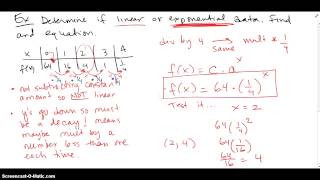 Ex Determine if linear or exponential data. Find
and equation.
x 0 1 2 3 4
f(x) 64 16 4 1 1/4
• not subtracting constant
amount so NOT linear
• y's go down so must
be a decay! means
maybe mult by a
number less than one
each time.
div by 4 → same mult × 1/4
f(x) = c · a^x
f(x) = 64 · (1/4)^x
Test it... x = 2
(2, 4)
64 (1/4)^2
64 (1/16)
64/16 = 4
Screencast-O-Matic.com